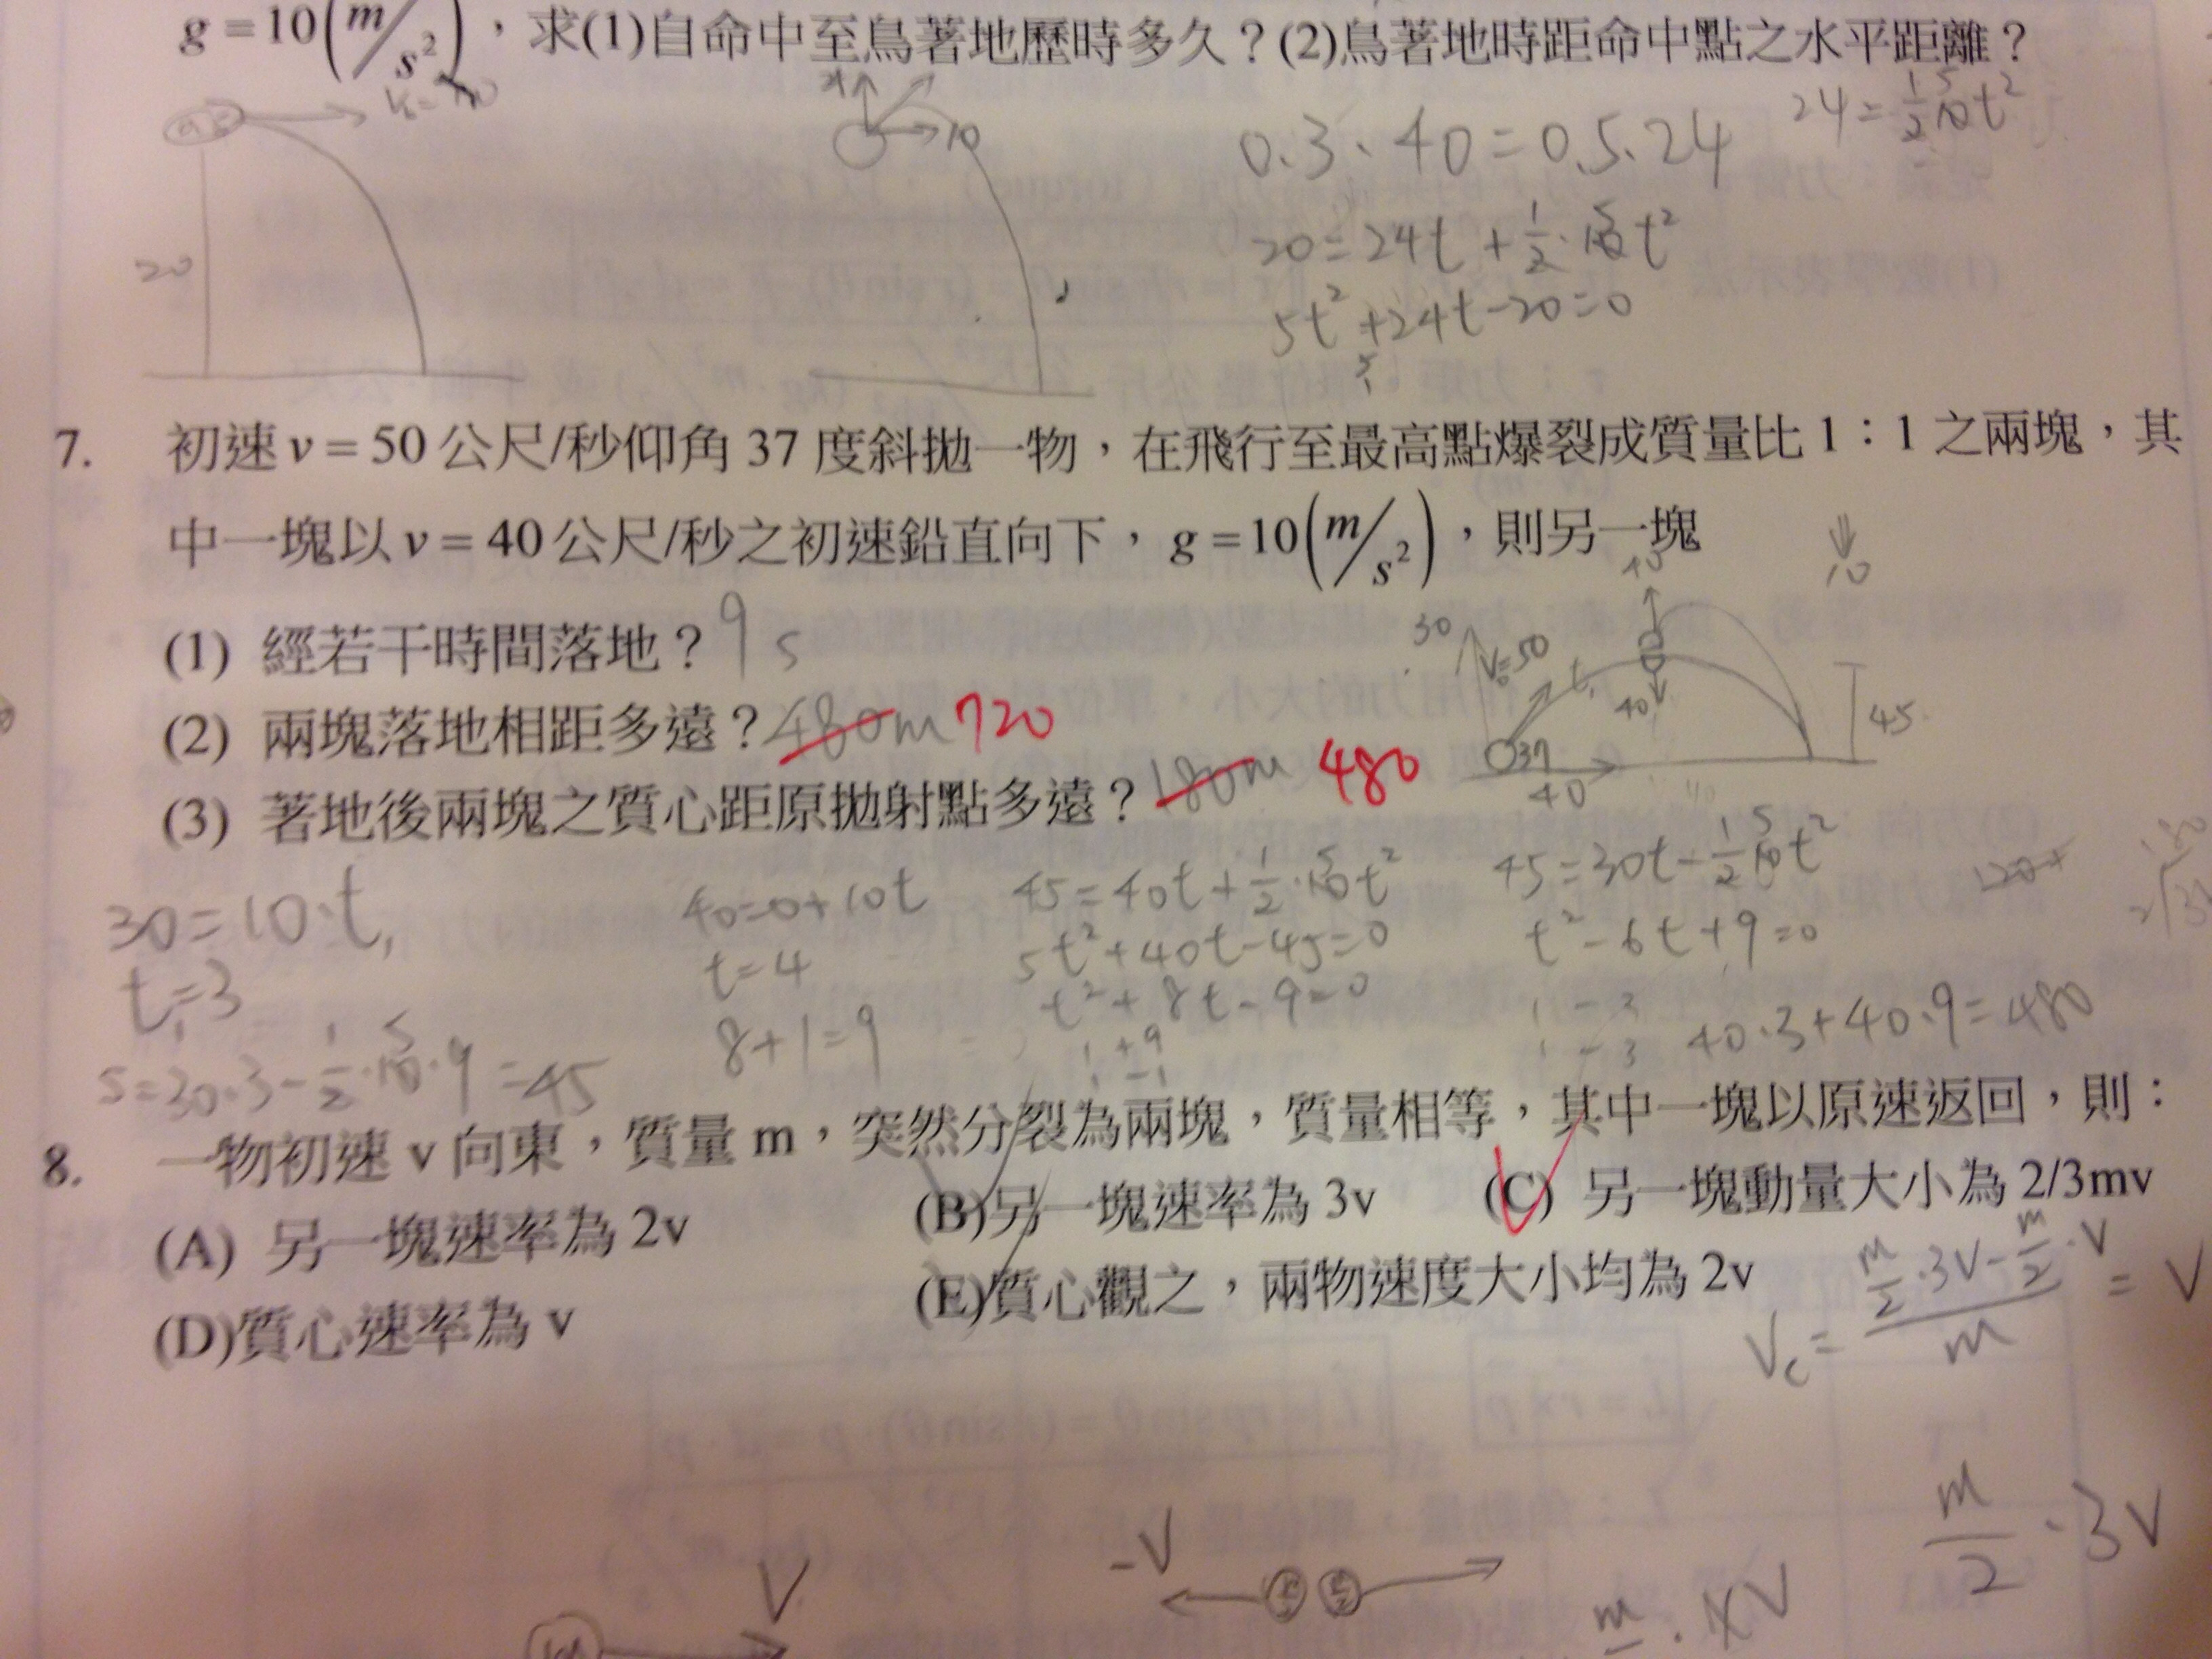 g = 10(m/s²)，求(1)自命中至鳥著地歷時多久？(2)鳥著地時距命中點之水平距離？
20
10
0.3 · 40 = 0.5 · 24
24 = 1/2 10 5 t²
20 = 24t + 1/2 · 10 5 t²
5t² + 24t - 20 = 0
7. 初速 v = 50 公尺/秒仰角 37 度斜拋一物，在飛行至最高點爆裂成質量比 1：1 之兩塊，其
中一塊以 v = 40 公尺/秒之初速鉛直向下，g = 10(m/s²)，則另一塊
10
(1) 經若干時間落地？ 9s
(2) 兩塊落地相距多遠？ 480m 720
(3) 著地後兩塊之質心距原拋射點多遠？ 180m 480
30
V₀=50
t₁
40
40
45
37
40
30 = 10 · t₁
t₁ = 3
S = 30 · 3 - 1/2 · 10 5 · 9 = 45
40 = 0 + 10t
t = 4
8 + 1 = 9
45 = 40t + 1/2 · 10 5 t²
5t² + 40t - 45 = 0
t² + 8t - 9 = 0
1 +9
1 -1
45 = 30t - 1/2 10 5 t²
t² - 6t + 9 = 0
1 -3
1 -3
40 · 3 + 40 · 9 = 480
8. 一物初速 v 向東，質量 m，突然分裂為兩塊，質量相等，其中一塊以原速返回，則：
(A) 另一塊速率為 2v (B)另一塊速率為 3v (C) 另一塊動量大小為 2/3mv
(D)質心速率為 v (E)質心觀之，兩物速度大小均為 2v
Vc = (m/2 · 3V - m/2 · V)/m = V
m/2 · 3V
V
-V